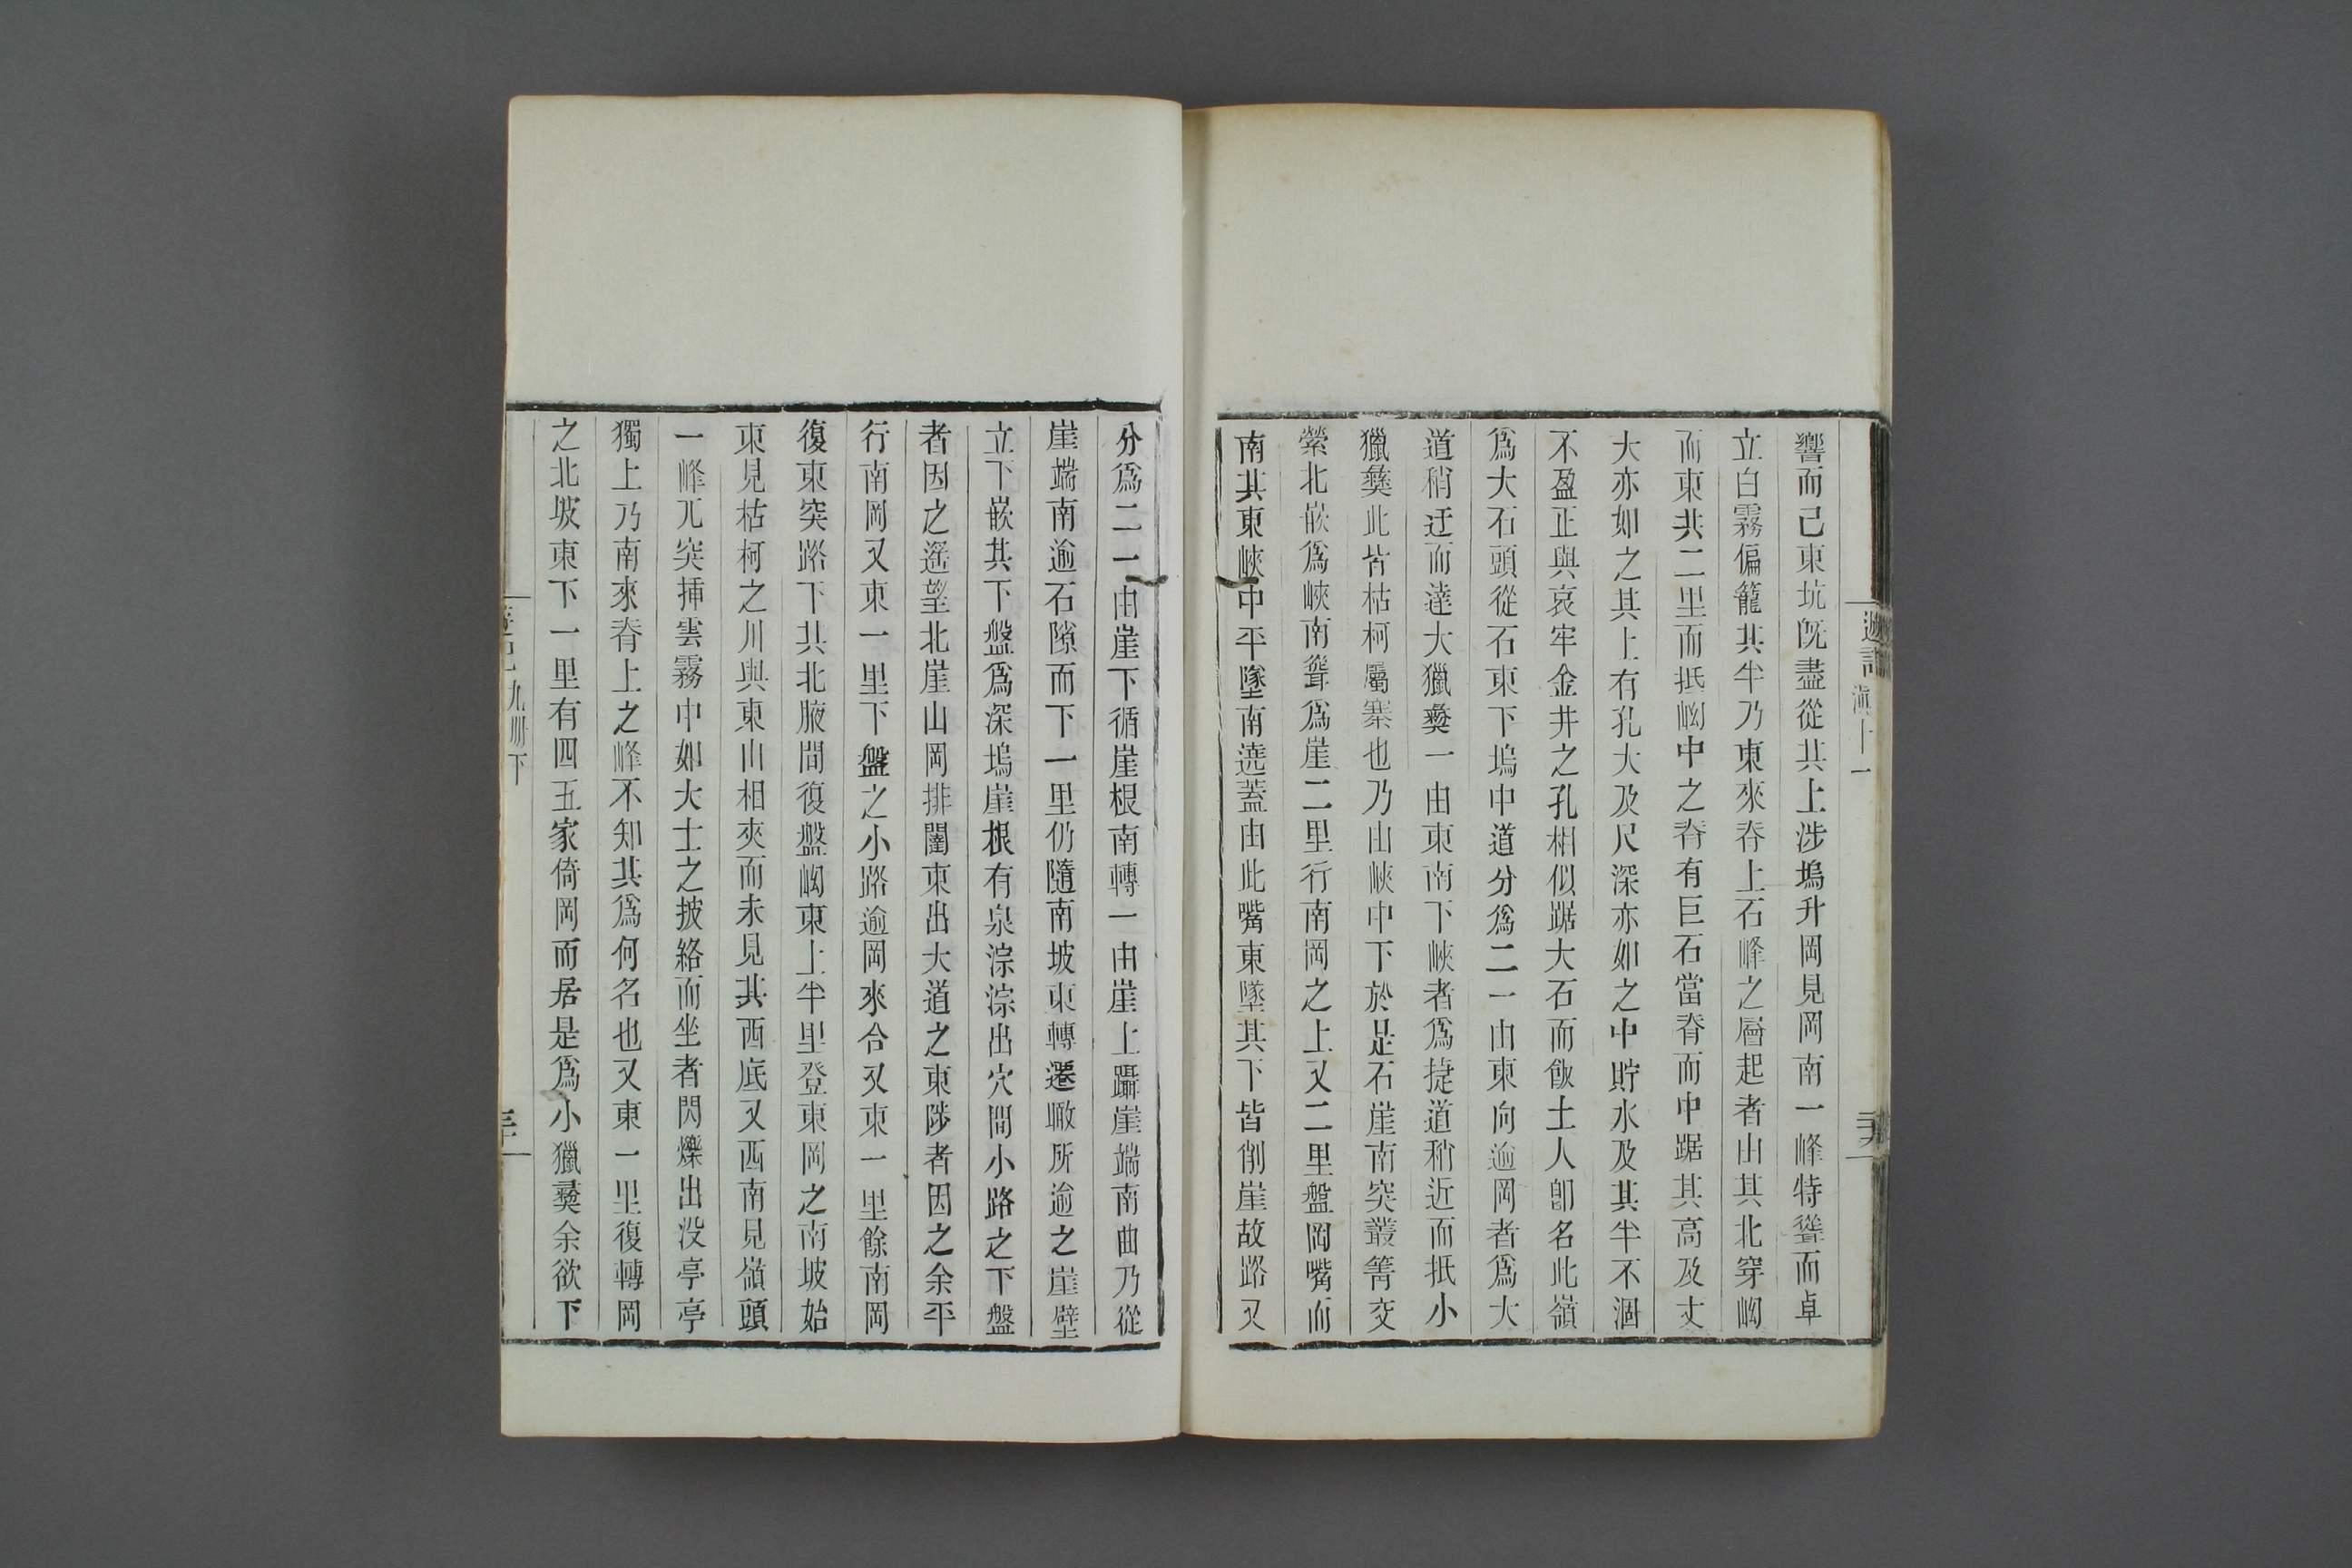 遊記 滇十一
響而已東坑既盡從其上涉塢升岡見岡南一峰特聳而卓
立白霧偏籠其半乃東來脊上石峰之層起者由其北穿坳
而東共二里而抵坳中之脊有巨石當脊而中踞其高及丈
大亦如之其上有孔大及尺深亦如之中貯水及其半不涸
不盈正與哀牢金井之孔相似踞大石而飯土人卽名此嶺
爲大石頭從石東下塢中道分爲二一由東向逾岡者爲大
道稍迂而達大獵彝一由東南下峽者爲捷道稍近而抵小
獵彝此皆枯柯屬寨也乃由峽中下於是石崖南突叢箐交
縈北嵌爲峽南聳爲崖二里行南岡之上又二里盤岡嘴而
南其東峽中平墜南遶蓋由此嘴東墜其下皆削崖故路又
分爲二一由崖下循崖根南轉一由崖上躡崖端南曲乃從
崖端南逾石隙而下一里仍隨南坡東轉還瞰所逾之崖壁
立下嵌其下盤爲深塢崖根有泉淙淙出穴間小路之下盤
者因之遥望北崖山岡排闥東出大道之東陟者因之余平
行南岡又東一里下盤之小路逾岡來合又東一里餘南岡
復東突路下共北腋間復盤坳東上半里登東岡之南坡始
東見枯柯之川與東山相夾而未見其西底又西南見嶺頭
一峰兀突插雲霧中如大士之披絡而坐者閃爍出没亭亭
獨上乃南來脊上之峰不知其爲何名也又東一里復轉岡
之北坡東下一里有四五家倚岡而居是爲小獵彝余欲下
九册下